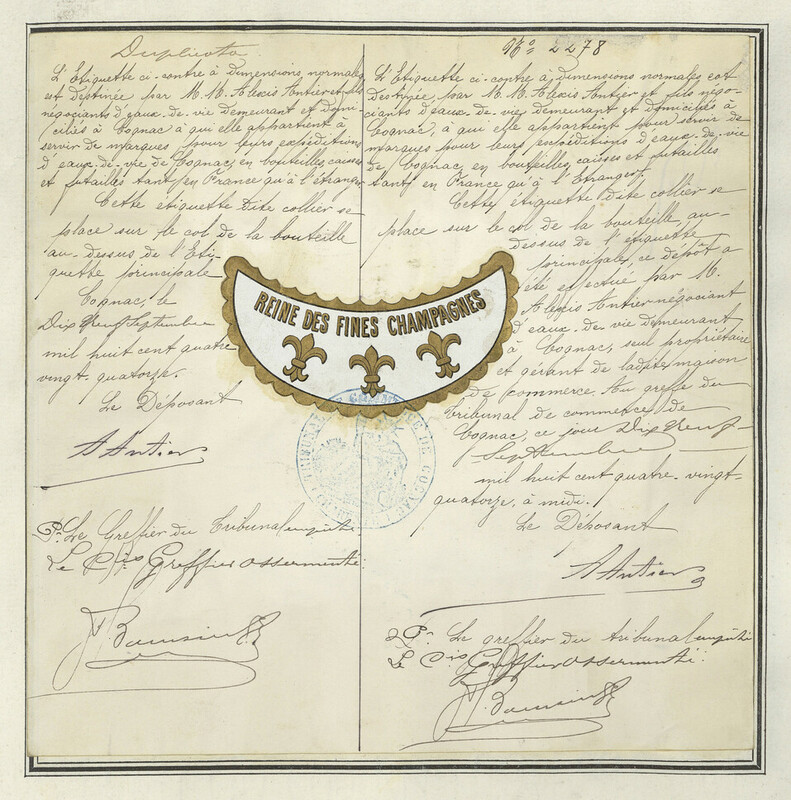 Duplicata
L'Etiquette ci-contre à dimensions normales
est destinée par M.M. Alexis Antier et fils
négociants d'eaux-de-vie demeurant et domi-
ciliés à Cognac à qui elle appartient à
servir de marques pour leurs expéditions
d'eaux-de-vie de Cognac, en bouteilles, caisses
et futailles tant en France qu'à l'étranger
Cette étiquette dite collier se
place sur le col de la bouteille
au-dessus de l'Eti-
quette principale
Cognac, le
Dix Neuf Septembre
mil huit cent quatre
vingt-quatorze.
Le Déposant
A Antier
Pr. Le Greffier du Tribunal empêché
Le Cis Greffier assermenté:
REINE DES FINES CHAMPAGNES
No 2278
L'Etiquette ci-contre à dimensions normales est
destinée par M.M. Alexis Antier et fils négo-
ciants d'eaux-de-vie demeurant et domiciliés à
Cognac, à qui elle appartient pour servir de
marques pour leurs expéditions d'eaux-de-vie
de Cognac en bouteilles, caisses et futailles
tant en France qu'à l'Etranger
Cette étiquette dite collier se
place sur le col de la bouteille, au-
dessus de l'étiquette
principale, ce dépôt a
été effectué par M.
Alexis Antier négociant
d'eaux-de-vie demeurant
à Cognac, seul propriétaire
et gérant de ladite maison
de commerce. Au greffe du
Tribunal de commerce de
Cognac, ce jour Dix Neuf
Septembre
mil huit cent quatre-vingt-
quatorze, à midi.
Le Déposant
A Antier
Pr. Le greffier du tribunal empêché
Le Cis Greffier assermenté: